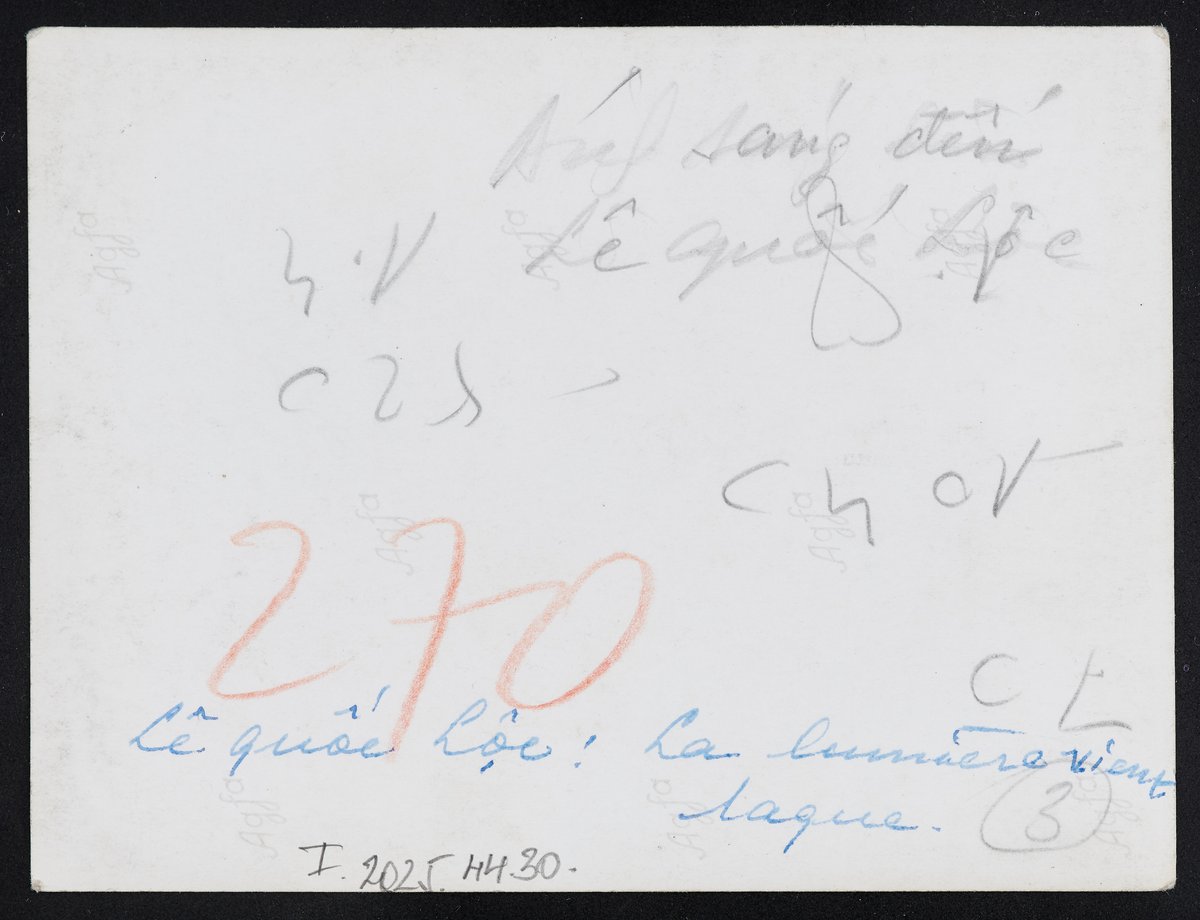 Ánh sáng đến
Lê quốc Lộc
C
270
C
Lê quốc Lộc: La lumière vient
laque.
3
I. 2025. 44.30.
Agfa
Agfa
Agfa
Agfa
Agfa
Agfa
Agfa
Agfa